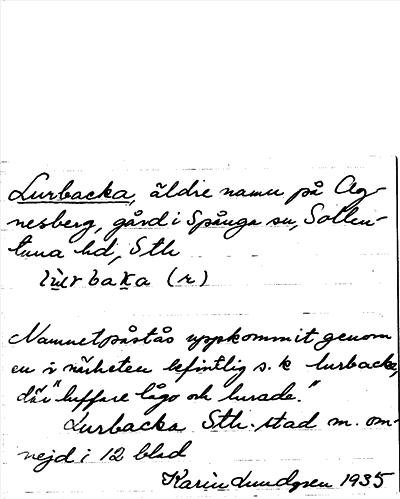 Lurbacka, äldre namn på Ag-
nesberg, gård i Spånga sn, Sollen-
tuna hd, Sth
lùrbaka (r)
Namnet påstås uppkommit genom
en i närheten befintlig s. k lurbacke,
där "luffare lågo och lurade."
Lurbacka Sth. stad m. om-
nejd i 12 blad
Karin Lundgren 1935